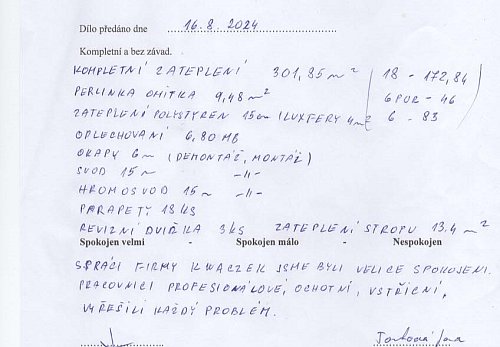 Dílo předáno dne 16.8.2024
Kompletní a bez závad.
KOMPLETNÍ ZATEPLENÍ 301,85 m² 18 - 172,84
PERLINKA OMÍTKA 9,48 m² 6POR - 46
ZATEPLENÍ POLYSTYREN 15cm (LUXFERY 4m² 6 - 83
OPLECHOVANÍ 6,80 MB
OKAPY 6m (DEMONTÁŽ, MONTÁŽ)
SVOD 15m -||-
HROMOSVOD 15m -||-
PARAPETY 18 KS
REVIZNÍ DVÍŘKA 3KS ZATEPLENÍ STROPU 13,4 m²
Spokojen velmi - Spokojen málo - Nespokojen
S PRÁCÍ FIRMY KWACZEK JSME BYLI VELICE SPOKOJENI.
PRACOVNÍCI PROFESIONÁLOVÉ, OCHOTNÍ, VSTŘÍCNÍ,
VYŘEŠILI KAŽDÝ PROBLÉM.